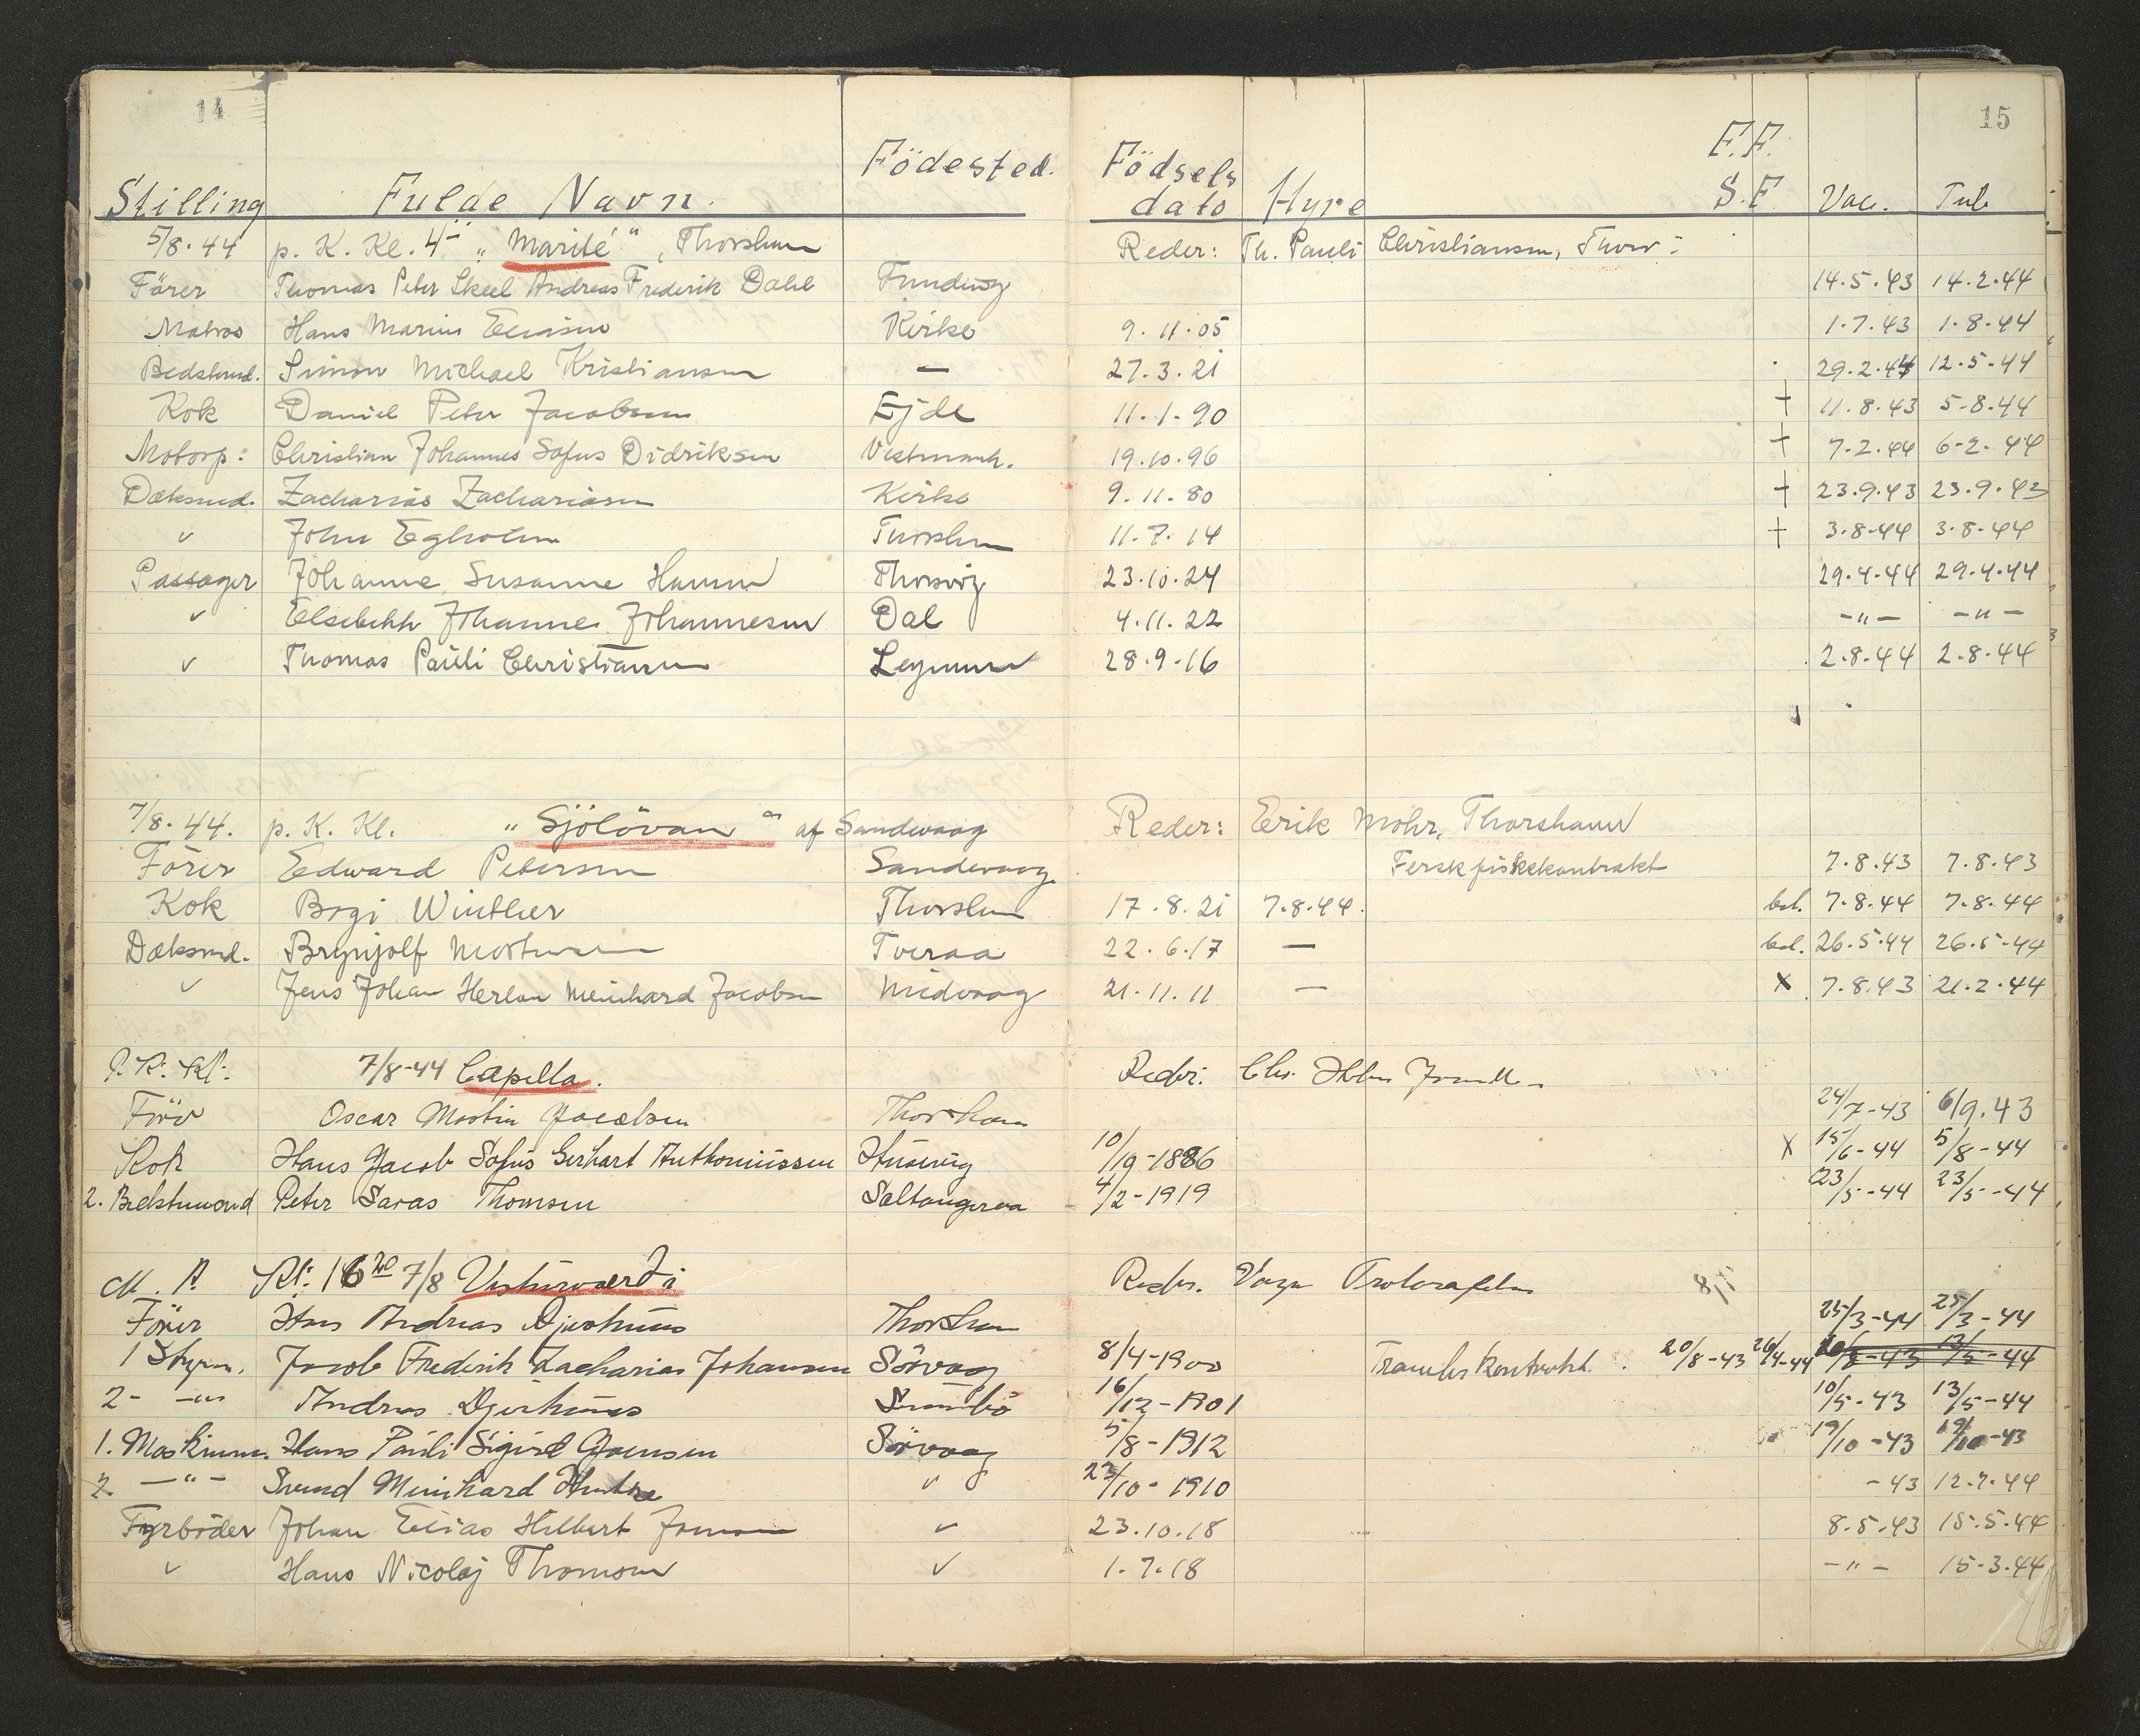 14
15
Stilling Fulde Navn. Födested. Födsels dato Hyre F.F. S.F Vac. Tub
5/8.44 p. K. Kl. 4 — „Marité“, Thorshavn Reder: Th. Pauli Christiansen, Thorsh:
Förer Thomas Peter Skeel Andreas Frederik Dahl Funding 14.5.43 14.2.44
Matros Hans Marius Eliasen Kirke 9.11.05 1.7.43 1.8.44
Bedstmd. Simon Michael Kristiansen — 27.3.21 29.2.44 12.5.44
Kok Daniel Peter Jacobsen Ejde 11.1.90 + 11.8.43 5.8.44
Motorp: Christian Johannes Sofus Didriksen Vestmanh. 19.10.96 + 7.2.44 6.2.44
Dæksmd. Zacharias Zachariasen Kirke 9.11.80 + 23.9.43 23.9.43
v John Egholm Thorshavn 11.7.14 + 3.8.44 3.8.44
Passager Johanne Susanne Hansen Thorsvig 23.10.24 29.4.44 29.4.44
v Elsebeth Johanne Johannesen Dal 4.11.22 -"- -"-
v Thomas Pauli Christiansen Leynum 28.9.16 2.8.44 2.8.44
7/8.44. p. K. Kl. „Sjólövan“ af Sandevaag Reder: Erik Mohr, Thorshavn
Förer Edward Petersen Sandevaag Ferskfiskekontrakt 7.8.43 7.8.43
Kok Bogi Winther Thorshavn 17.8.21 7.8.44. bet. 7.8.44 7.8.44
Dæksmd. Brynjolf Mortensen Tveraa 22.6.17 — bet. 26.5.44 26.5.44
v Jens Johan Herlou Meinhard Jacobsen Midvaag 21.11.11 — x 7.8.43 21.2.44
P. K. Kl: 7/8-44 Capella. Reder: Chr.
Förer Oscar Martin Jacobsen Thorshavn 24/7-43 6/9.43
Kok Hans Jacob Sofus Gerhart Anthoniussen Husevig 10/10-1886 X 15/6-44 5/8-44
2. Bedstemand Peter Saras Thomsen Saltangeraa 4/2-1919 23/5-44 23/5-44
M. A. Kl: 16 20 7/8 Vesturvardi Reder. Vaga
Förer Hans Andreas Djurhuus Thorshavn 25/3-44 25/3-44
1 Styrm. Jacob Frederik Zacharias Johansen Sörvaag 8/4-1900 Trawler Kontrakt. 20/8-43 26/4-44 20/8-43 12/5-44
2- -"- Andreas Djurhuus Sumbö 16/12-1901 10/5-43 13/5-44
1. Maskinm. Hans Pauli Sigurd Joensen Sörvaag 5/8-1912 19/10-43 19/10-43
2. -"- Svend Meinhard v 22/10-1910 -43 12.7.44
Fyrböder Johan Elias Hilbert Joensen v 23.10.18 8.5.43 15.5.44
v Hans Nicolaj Thomsen v 1.7.18 -"- 15.3.44